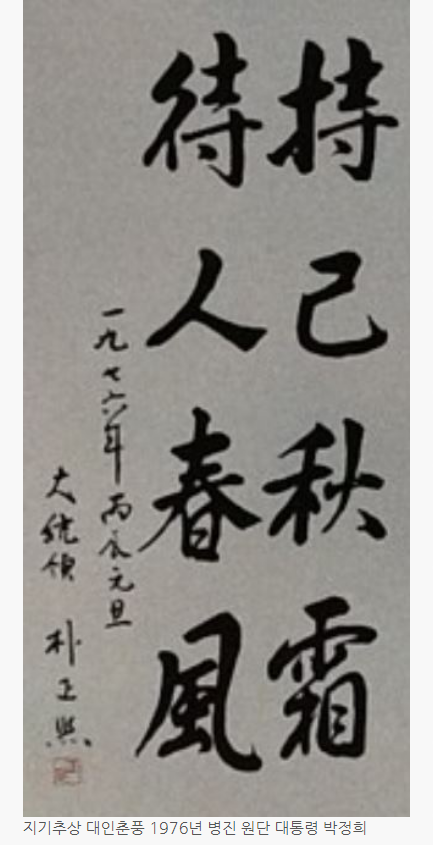 持己秋霜
待人春風
一九七六年 丙辰元旦
大統領 朴正熙
지기추상 대인춘풍 1976년 병진 원단 대통령 박정희